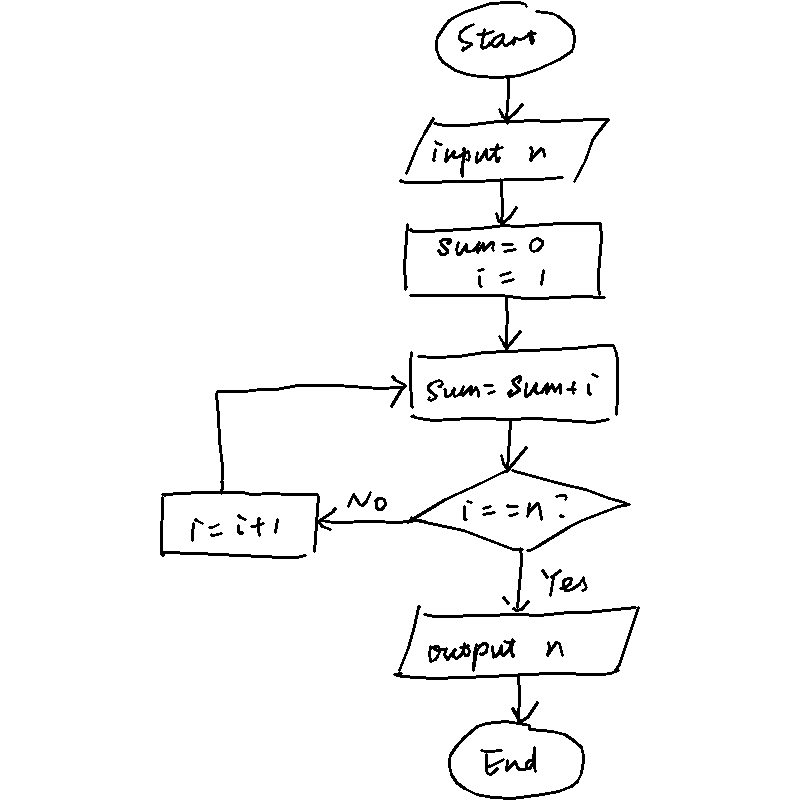 Start
input n
sum = 0
i = 1
sum = sum + i
No
i = = n ?
i = i + 1
Yes
output n
End